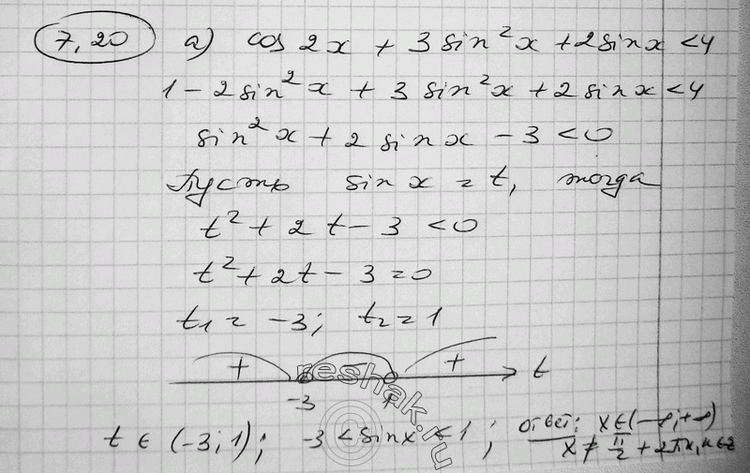 7,20 а) cos 2x + 3 sin²x + 2 sin x < 4
1 - 2 sin²x + 3 sin²x + 2 sin x < 4
sin²x + 2 sin x - 3 < 0
Пусть sin x = t, тогда
t² + 2t - 3 < 0
t² + 2t - 3 = 0
t₁ = -3; t₂ = 1
+ - + t
-3 1
reshak.ru
t ∈ (-3; 1); -3 < sin x < 1; ответ: x ∈ (-∞; +∞)
x ≠ π/2 + 2πn, n ∈ z